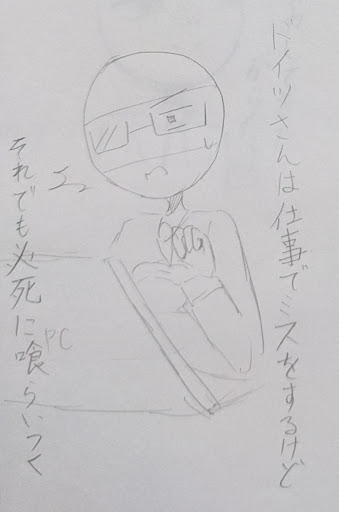 ドイツさんは仕事でミスをするけど
エッ
それでも必死に喰らいつく
PC